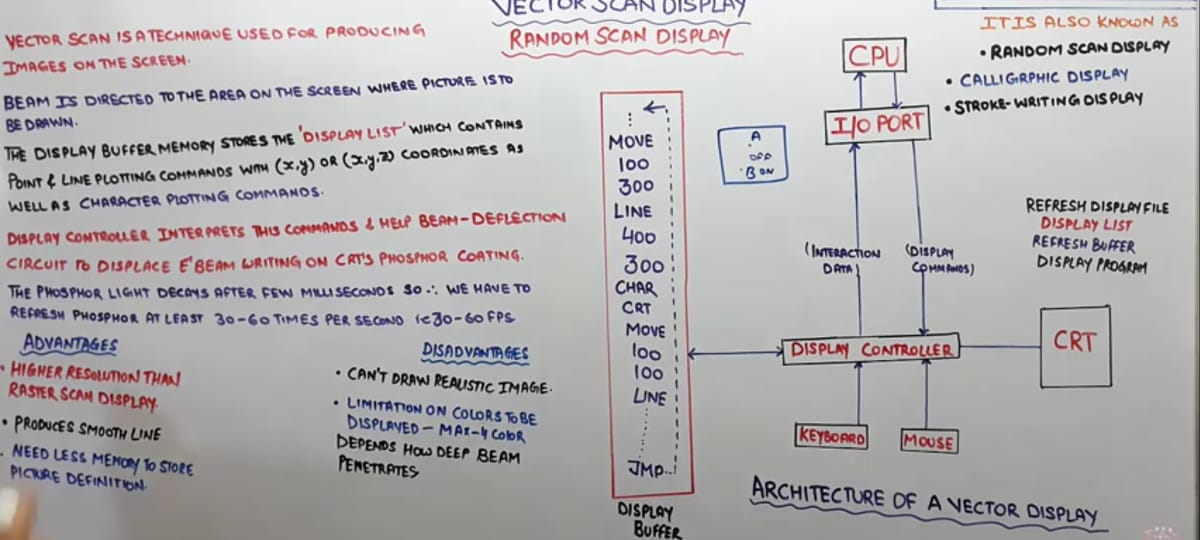 VECTOR SCAN DISPLAY
RANDOM SCAN DISPLAY
VECTOR SCAN IS A TECHNIQUE USED FOR PRODUCING
IMAGES ON THE SCREEN.
BEAM IS DIRECTED TO THE AREA ON THE SCREEN WHERE PICTURE IS TO
BE DRAWN.
THE DISPLAY BUFFER MEMORY STORES THE 'DISPLAY LIST' WHICH CONTAINS
POINT & LINE PLOTTING COMMANDS WITH (x,y) OR (x,y,z) COORDINATES AS
WELL AS CHARACTER PLOTTING COMMANDS.
DISPLAY CONTROLLER INTERPRETS THIS COMMANDS & HELP BEAM-DEFLECTION
CIRCUIT TO DISPLACE E- BEAM WRITING ON CRT'S PHOSPHOR COATING.
THE PHOSPHOR LIGHT DECAYS AFTER FEW MILLISECONDS SO ∴ WE HAVE TO
REFRESH PHOSPHOR AT LEAST 30-60 TIMES PER SECOND i.e 30-60 FPS
ADVANTAGES
• HIGHER RESOLUTION THAN
RASTER SCAN DISPLAY.
• PRODUCES SMOOTH LINE
• NEED LESS MEMORY TO STORE
PICTURE DEFINITION.
DISADVANTAGES
• CAN'T DRAW REALISTIC IMAGE.
• LIMITATION ON COLORS TO BE
DISPLAYED - MAX-4 COLOR
DEPENDS HOW DEEP BEAM
PENETRATES
MOVE
100
300
LINE
400
300
CHAR
CRT
MOVE
100
100
LINE
JMP
DISPLAY
BUFFER
A
OFF
B ON
CPU
I/O PORT
(INTERACTION
DATA)
(DISPLAY
COMMANDS)
DISPLAY CONTROLLER
CRT
KEYBOARD
MOUSE
ARCHITECTURE OF A VECTOR DISPLAY
IT IS ALSO KNOWN AS
• RANDOM SCAN DISPLAY
• CALLIGRPHIC DISPLAY
• STROKE-WRITING DISPLAY
REFRESH DISPLAY FILE
DISPLAY LIST
REFRESH BUFFER
DISPLAY PROGRAM